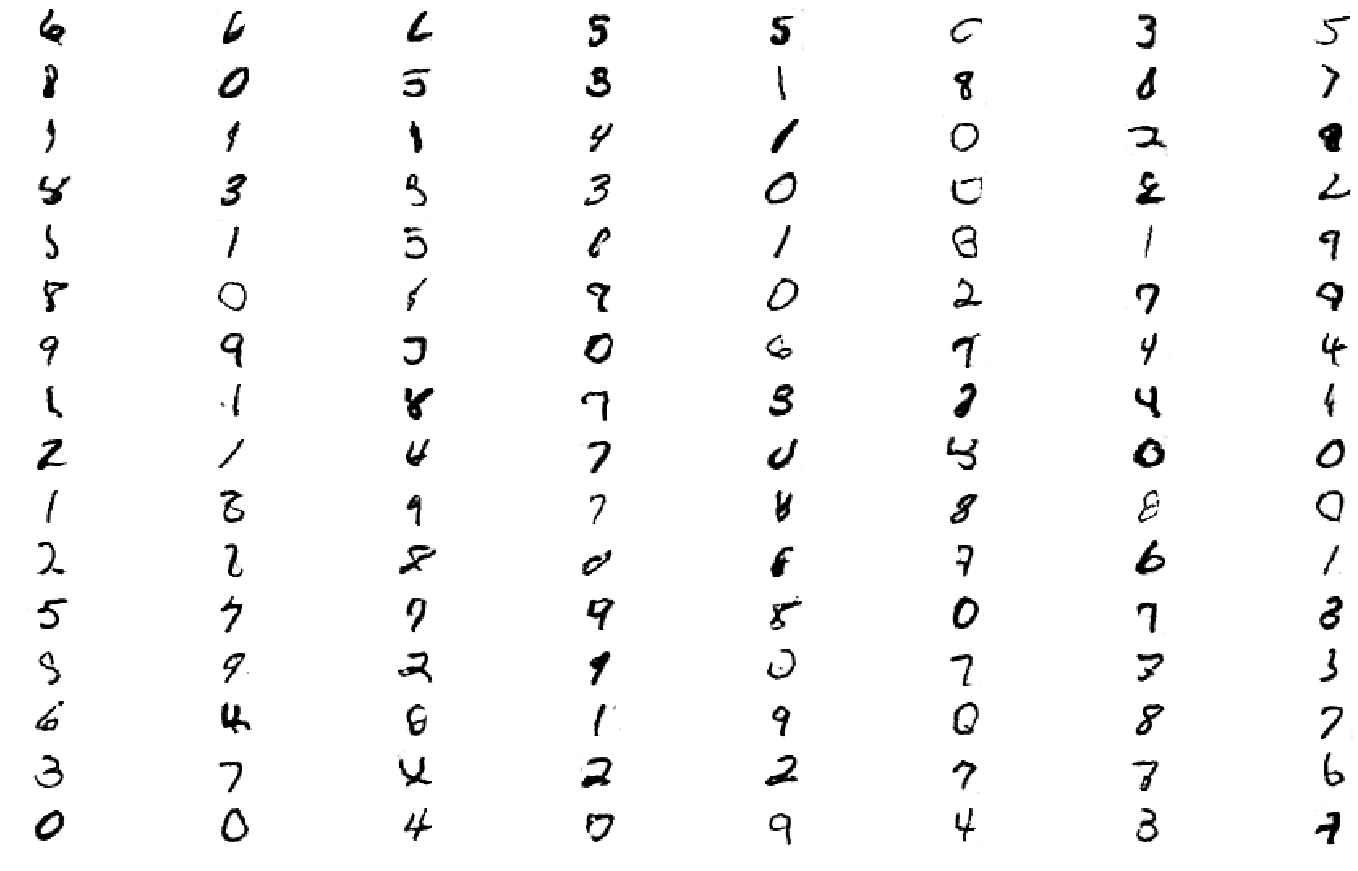 6 6 6 5 5 3 5
8 0 5 3 1 8 8 7
1 1 1 4 1 0 2 8
8 3 3 0 2 2
5 1 5 8 1 8 1 9
8 0 9 0 2 7 9
9 9 0 6 7 4 4
1 1 8 7 3 2 4 1
2 1 4 7 0 0
1 8 9 7 8 8 8 0
2 2 8 0 8 7 6 1
5 7 7 9 8 0 7 3
9 9 2 9 0 7 3 3
6 4 8 1 9 0 8 7
3 7 2 2 7 7 6
0 0 4 9 4 3 7